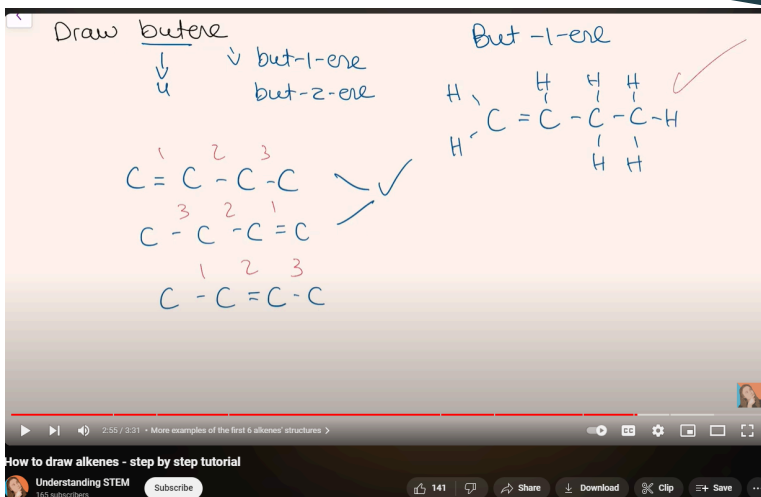 Draw butene
↓ ↓ but-1-ene
4 but-2-ene
But-1-ene
H H H H
C = C - C - C - H
H H H
1 2 3
C = C - C - C
3 2 1
C - C - C = C
1 2 3
C - C = C - C
2:55 / 3:31 • More examples of the first 6 alkenes' structures >
CC
How to draw alkenes - step by step tutorial
Understanding STEM
165 subscribers
Subscribe
141
Share
Download
Clip
Save